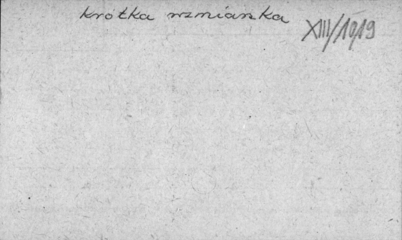 krótka wzmianka
XIII/1919